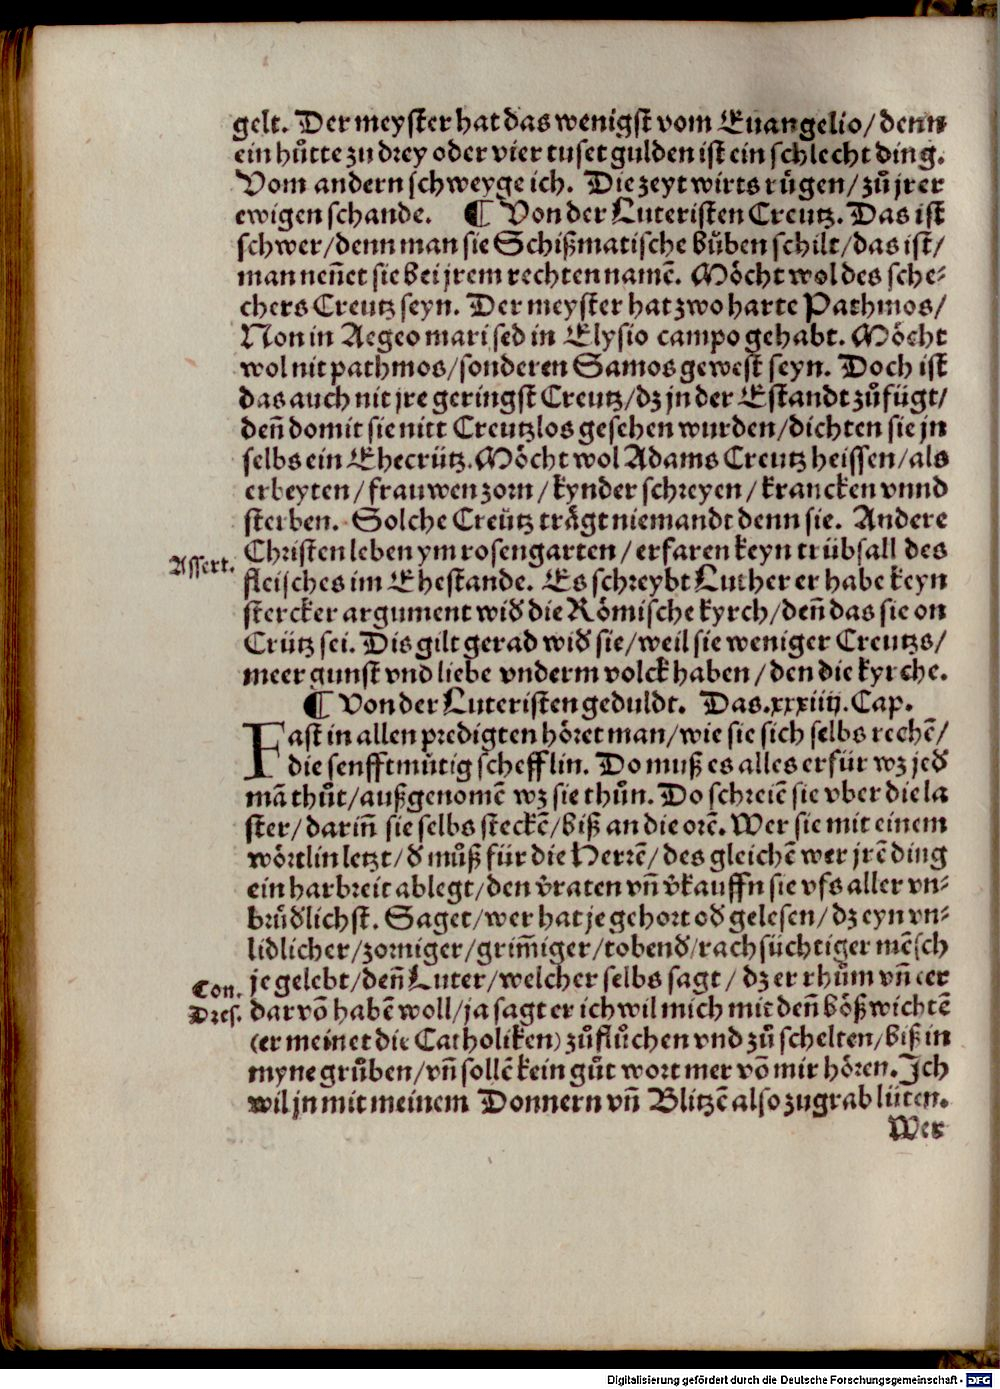 gelt. Der meyster hat das wenigst vom Euangelio/ denn
ein hůtte zu drey oder vier tuset gulden ist ein schlecht ding.
Vom andern schweyge ich. Die zeyt wirts rügen/ zů jrer
ewigen schande. ¶ Von der Luteristen Creutz. Das ist
schwer/ denn man sie Schißmatische bůben schilt/ das ist/
man neñet sie bei jrem rechten namē. Möcht wol des sche-
chers Creutz seyn. Der meyster hat zwo harte Pathmos/
Non in Aegeo mari sed in Elysio campo gehabt. Möcht
wol nit pathmos/ sonderen Samos gewest seyn. Doch ist
das auch nit jre geringst Creutz/ dz jn der Estandt zůfügt/
deñ domit sie nitt Creutzlos gesehen wurden/ dichten sie jn
selbs ein Ehecrütz. Möcht wol Adams Creutz heissen/ als
erbeyten/ frauwen zorn/ kynder schreyen/ krancken vnnd
sterben. Solche Creütz trägt niemandt denn sie. Andere
Assert. Christen leben ym rosengarten/ erfaren keyn trübsall des
fleisches im Ehestande. Es schreybt Luther er habe keyn
stercker argument wid̕ die Römische kyrch/ deñ das sie on
Crütz sei. Dis gilt gerad wid̕ sie/ weil sie weniger Creutzs/
meer gunst vnd liebe vnderm volck haben/ den die kyrche.
¶ Von der Luteristen geduldt. Das.xxxiiij.Cap.
Fast in allen predigten höret man/ wie sie sich selbs rechē/
die senfftmůtig schefflin. Do muß es alles erfür wz jed̕
mā thůt/ außgenomē wz sie thůn. Do schreiē sie vber die la
ster/ dariñ sie selbs steckē/ biß an die orē. Wer sie mit einem
wörtlin letzt/ d̕ můß für die Herrē/ des gleichē wer jrē ding
ein harbreit ablegt/ den v̕raten vñ v̕kauffn sie vfs aller vn-
brůd̕lichst. Saget/ wer hat je gehort od̕ gelesen/ dz eyn vn-
lidlicher/ zorniger/ grim̄iger/ tobend̕/ rachsüchtiger mēsch
Con. je gelebt/ deñ Luter/ welcher selbs sagt/ dz er rhům vñ eer
Dres. darvō habē woll/ ja sagt er ich wil mich mit deñ bößwichtē
(er meinet die Catholiken) zů flůchen vnd zů schelten/ biß in
myne grůben/ vñ sollē kein gůt wort mer vō mir hören. Ich
wil jn mit meinem Donnern vñ Blitzē also zu grab lüten.
Wer
Digitalisierung gefördert durch die Deutsche Forschungsgemeinschaft - DFG